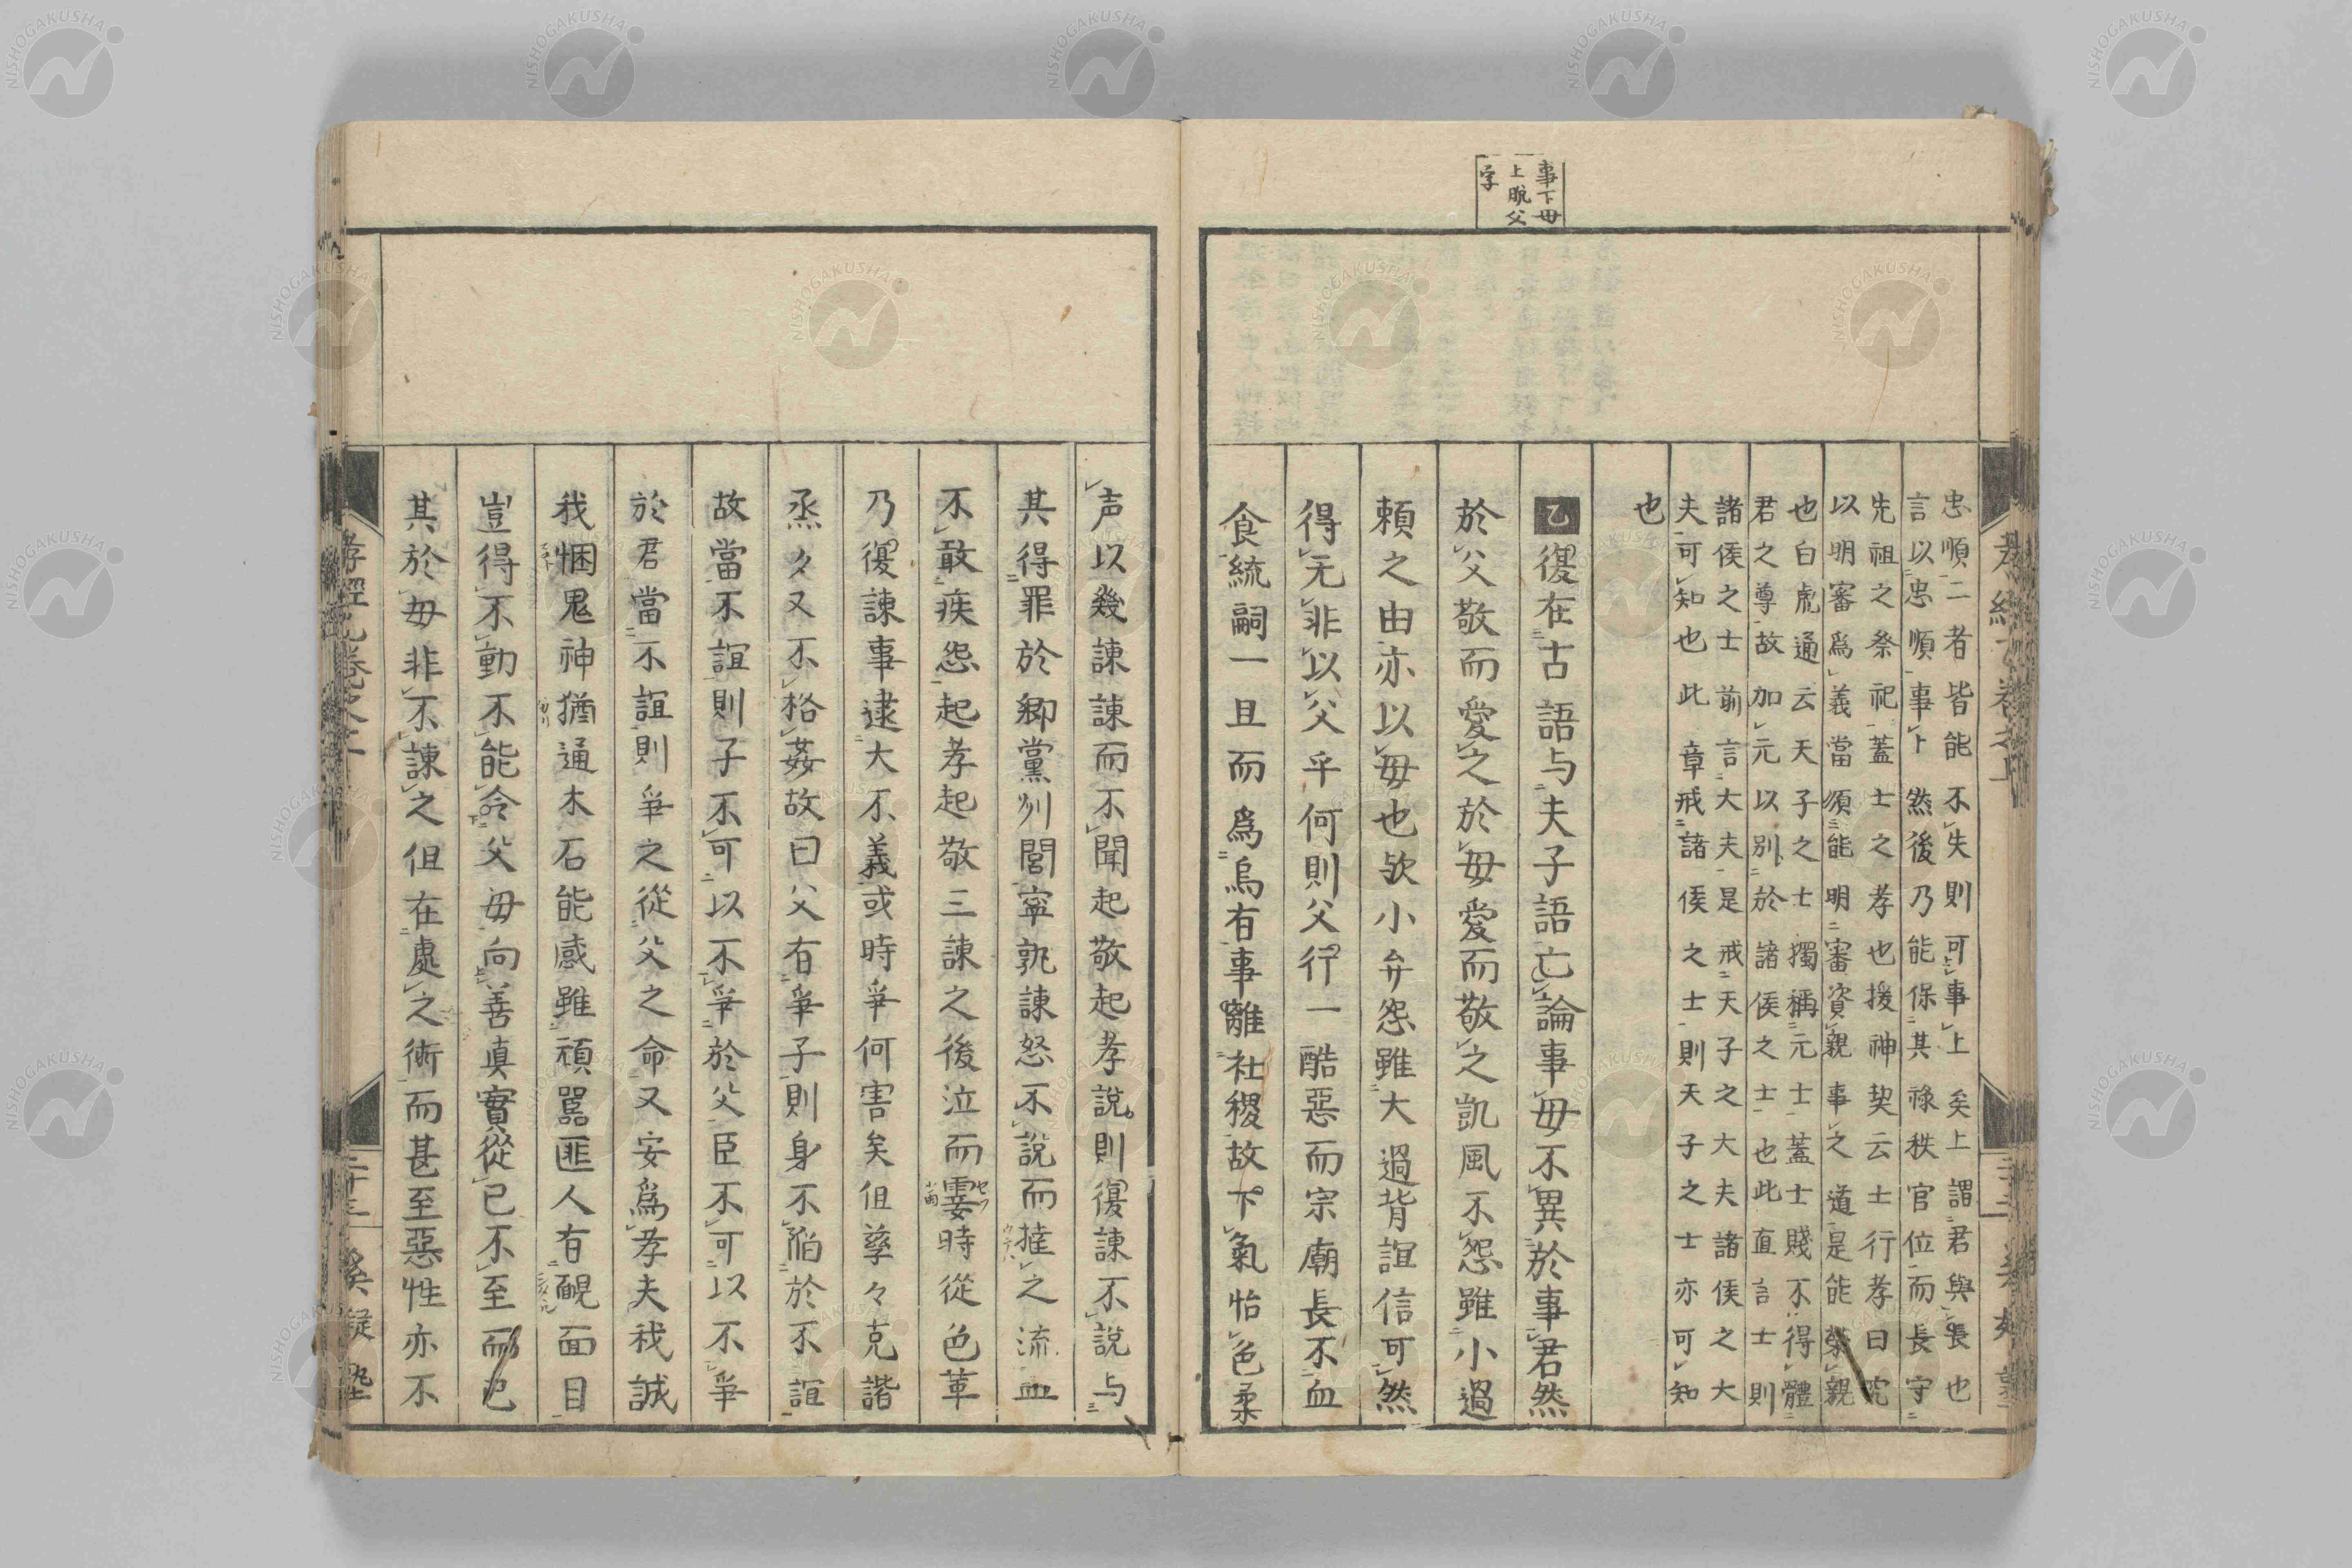 事下毋
上脱父
字
忠順二者皆能不失則可事上矣上謂君與長也
言以忠順事上然後乃能保其祿秩官位而長守
先祖之祭祀蓋士之孝也援神契云士行孝曰究
以明審爲義當須能明審資親事之道是能榮親
也白虎通云天子之士獨稱元士蓋士賤不得體
君之尊故加元以別於諸侯之士也此直言士則
諸侯之士前言大夫是戒天子之大夫諸侯之大
夫可知也此章戒諸侯之士則天子之士亦可知
也
乙復在古語与夫子語亡論事毋不異於事君然
於父敬而愛之於毋愛而敬之凱風不怨雖小過
頼之由亦以毋也欤小弁怨雖大過背誼信可然
得无非以父乎何則父行一酷惡而宗廟長不血
食統嗣一旦而爲烏有事離社稷故下氣怡色柔
声以幾諫諫而不聞起敬起孝說則復諫不説与
其得罪於郷黨州閭寧孰諫怒不説而撻之流血
不敢疾怨起孝起敬三諫之後泣而霎時從色革
乃復諫事逮大不義或時爭何害矣但孳々克諧
烝々又不格姦故曰父有爭子則身不陷於不誼
故當不誼則子不可以不爭於父臣不可以不爭
於君當不誼則爭之從父之命又安爲孝夫我誠
我悃鬼神猶通木石能感雖頑嚚匪人有靦面目
豈得不動不能令父毋向善眞實從已不至而已
其於毋非不諫之但在處之術而甚至惡性亦不
孝經孔卷之上
NISHOGAKUSHA